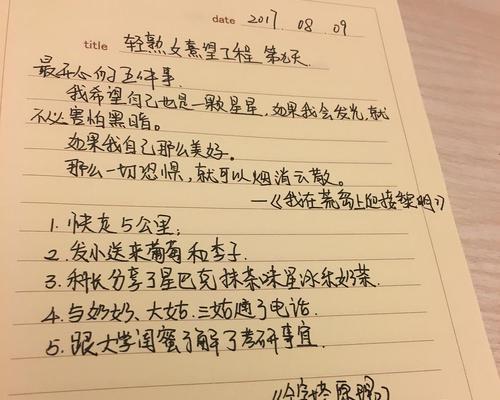 date 2017. 08 09
title 轻熟女 望工程 第九天.
最开心的五件事.
我希望自己也是一颗星星,如果我会发光,就
不必害怕黑暗。
如果我自己那么美好。
那么一切恐惧,就可以烟消云散。
—《我在荒岛上迎接黎明》
1. 快走5公里;
2. 发小送来葡萄和李子.
3. 科长分享了星巴克抹茶味星冰乐奶茶.
4. 与奶奶、大姑、三姑通了电话.
5. 跟大学闺蜜了解了考研事宜.
《金字塔原理》